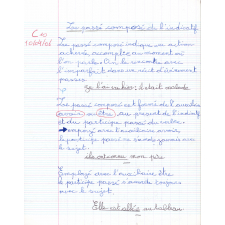 Le passé composé de l'indicatif
Le passé composé indique une action
achevée, accomplie au moment où
l'on parle. On le rencontre avec
l'imparfait dans un récit d'évènement
passés.
Le passé composé est formé de l'auxiliaire
avoir ou être au présent de l'indicatif
et du participe passé du verbe.
employé avec l'auxiliaire avoir
le participe passé ne s'accorde pas avec
le sujet.
Employé avec l'auxiliaire être
le participe passé s'accorde toujours
avec le sujet.
Elle est allée au tableau